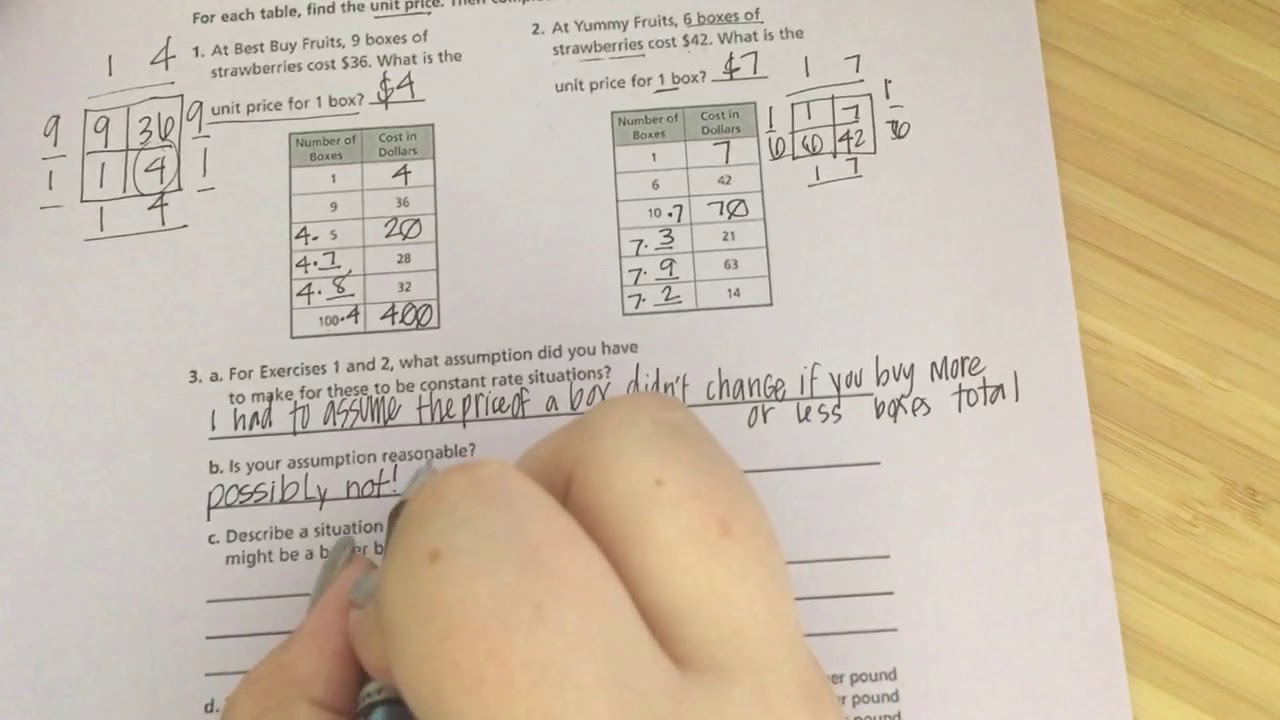 For each table, find the unit price.
1 4
1. At Best Buy Fruits, 9 boxes of
strawberries cost $36. What is the
unit price for 1 box? $4
9 9 36 9
1 1 4 1
1 4
Number of Boxes Cost in Dollars
1 4
9 36
4. 5 20
4.7 28
4.8 32
100.4 400
2. At Yummy Fruits, 6 boxes of
strawberries cost $42. What is the
unit price for 1 box? $7
1 7
1 1 7 1
6 42
1 7
Number of Boxes Cost in Dollars
1 7
6 42
10.7 70
7.3 21
7.9 63
7.2 14
3. a. For Exercises 1 and 2, what assumption did you have
to make for these to be constant rate situations?
I had to assume the price of a box didn't change if you buy more
or less boxes total
b. Is your assumption reasonable?
possibly not!
c. Describe a situation
might be a
d.
er pound
r pound